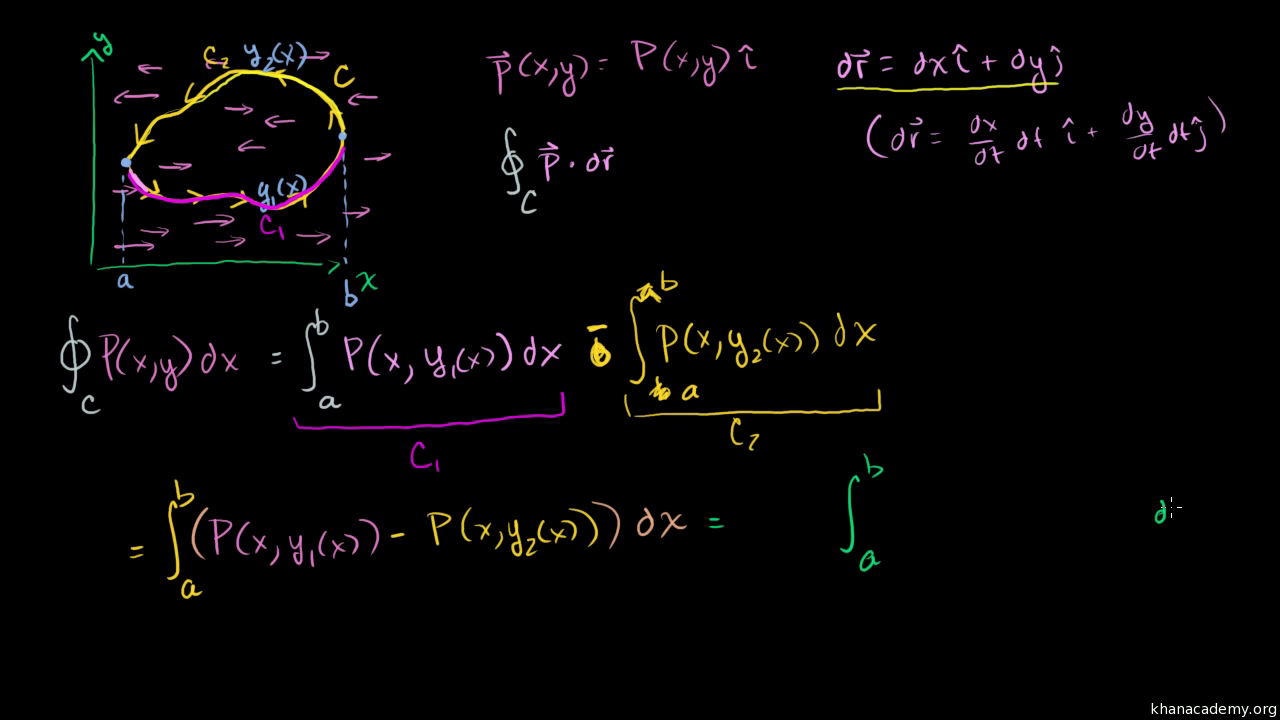 y
C₂ y₂(x)
C
y₁(x)
C₁
a
b x
P⃗(x,y) = P(x,y) î
dr⃗ = dx î + dy ĵ
(dr⃗ = dx/dt dt î + dy/dt dt ĵ)
∮_C P⃗ · dr⃗
∮_C P(x,y) dx = ∫_a^b P(x, y₁(x)) dx − ∫_a^b P(x, y₂(x)) dx
C₁ C₂
= ∫_a^b (P(x, y₁(x)) − P(x, y₂(x))) dx = ∫_a^b d
khanacademy.org